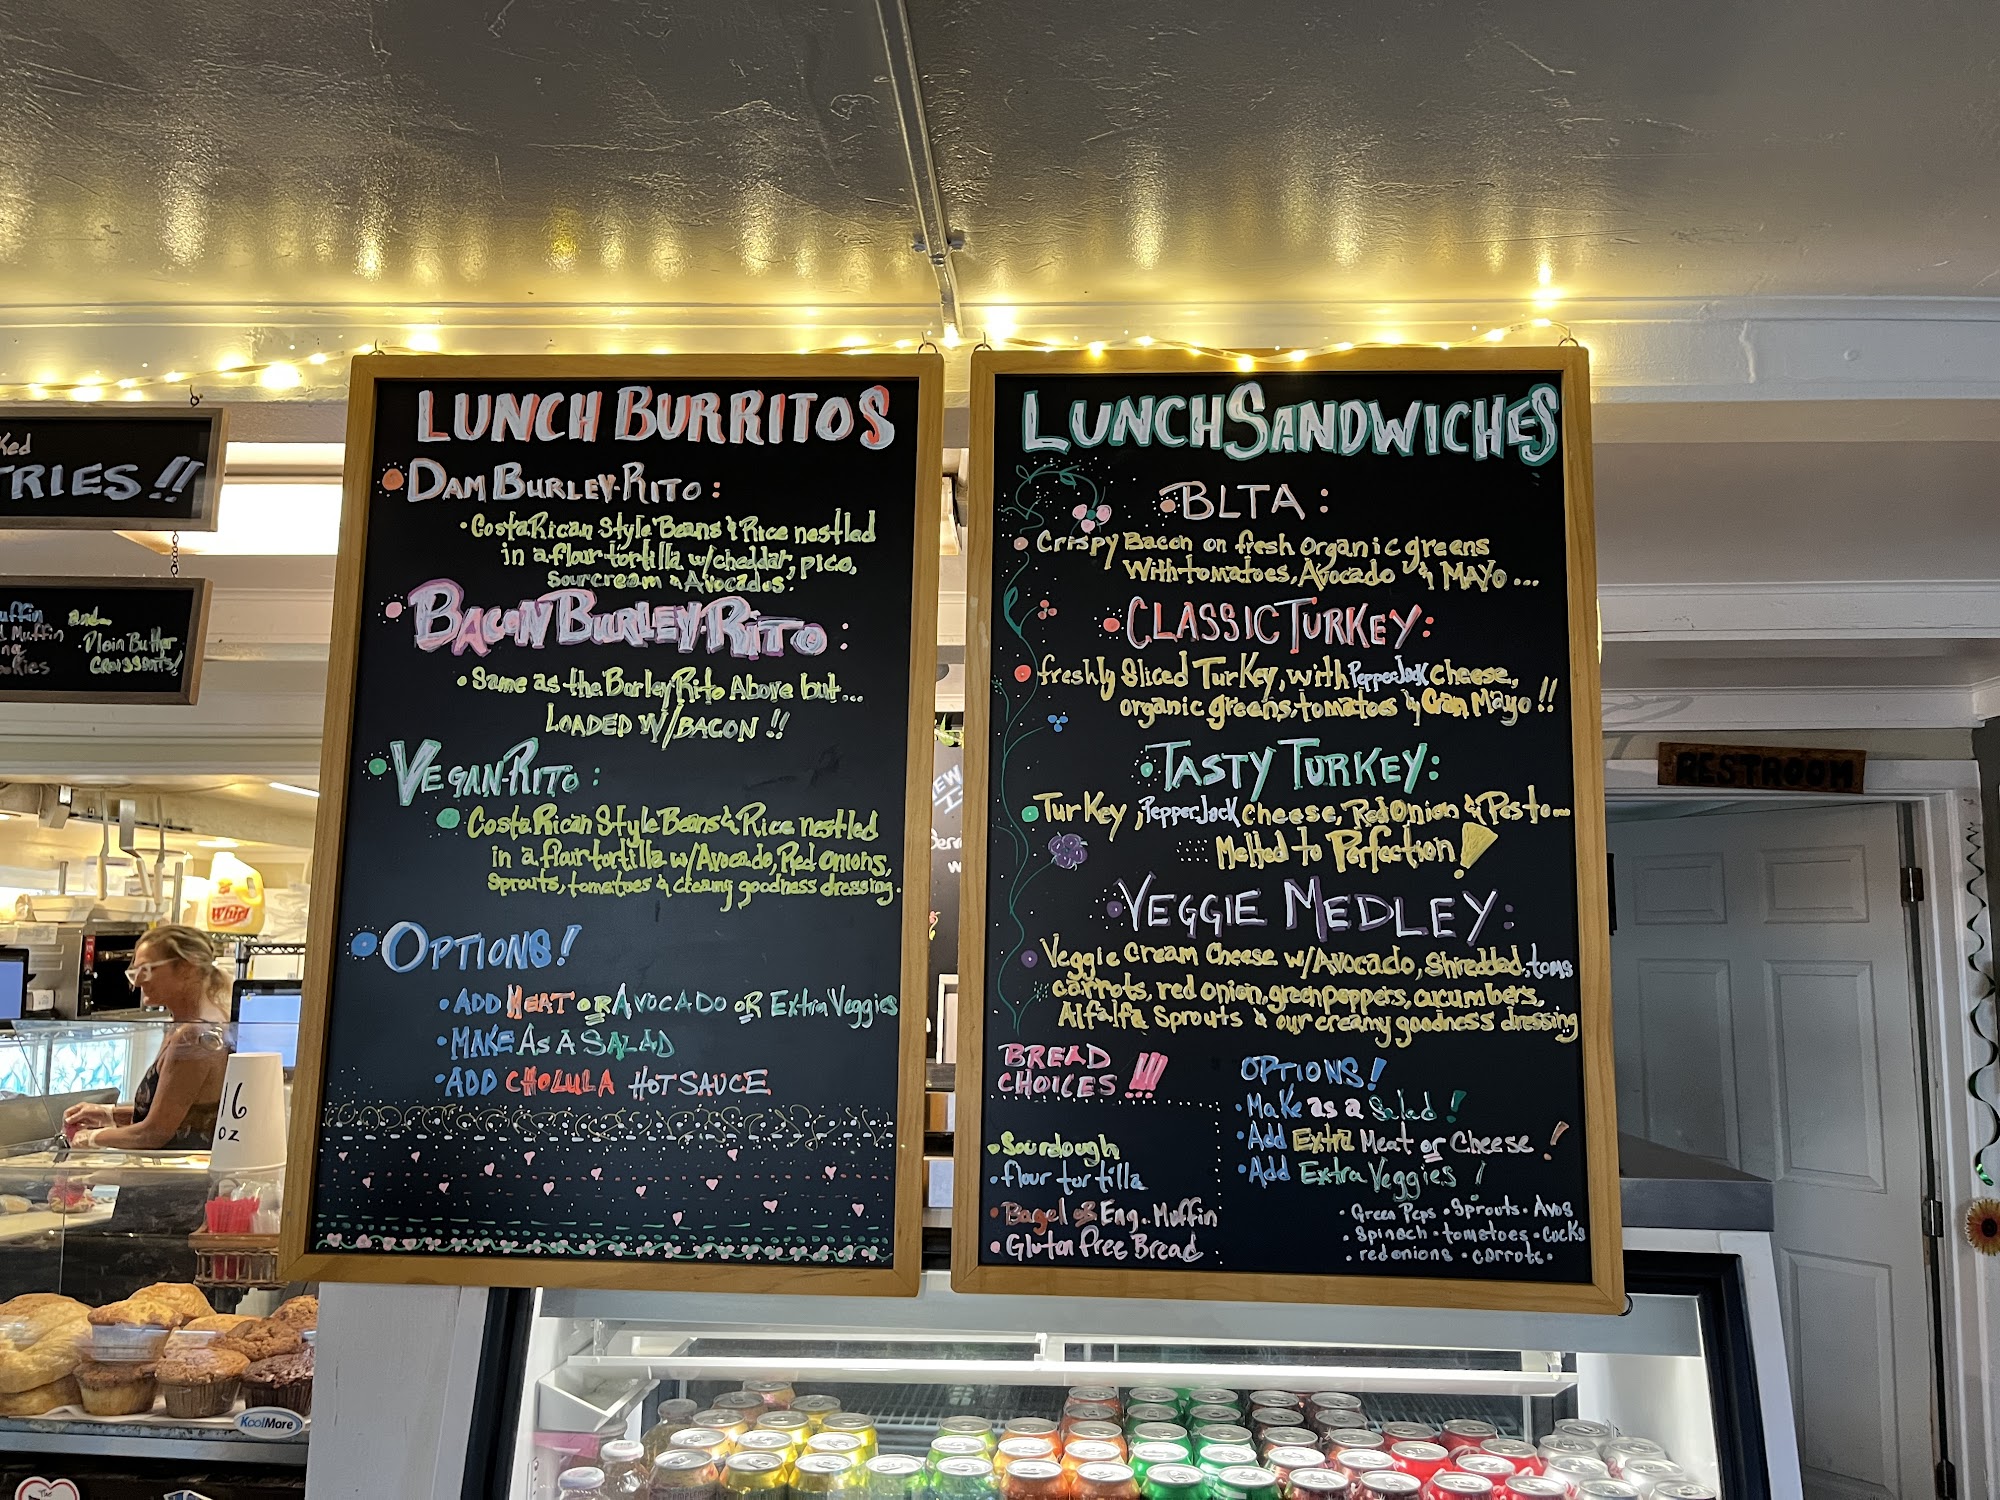 ked
TRIES!!
uffin and
d Muffin
Plain Butter
Croissants!
okies
LUNCH BURRITOS
DAM BURLEY-RITO:
Costa Rican Style Beans & Rice nestled
in a flour tortilla w/cheddar, pico,
sourcream & Avocados.
BACON BURLEY-RITO:
Same as the Burley Rito Above but...
LOADED W/BACON!!
VEGAN-RITO:
Costa Rican Style Beans & Rice nestled
in a flour tortilla w/Avocado, Red onions,
sprouts, tomatoes & creamy goodness dressing.
OPTIONS!
ADD MEAT OR AVOCADO OR Extra Veggies
MAKE AS A SALAD
ADD CHOLULA HOT SAUCE
LUNCH SANDWICHES
BLTA:
Crispy Bacon on fresh organic greens
With tomatoes, Avocado & MAYO...
CLASSIC TURKEY:
freshly Sliced Turkey, with PepperJack cheese,
organic greens, tomatoes & Gan Mayo!!
TASTY TURKEY:
Turkey, PepperJack cheese, Red Onion & Pesto...
Melted to Perfection!
VEGGIE MEDLEY:
Veggie Cream Cheese w/Avocado, shredded, toms
carrots, red onion, green peppers, cucumbers,
Alfalfa Sprouts & our creamy goodness dressing
BREAD
CHOICES!!!
Sourdough
flour tortilla
Bagel OR Eng. Muffin
Gluton Free Bread
OPTIONS!
Make as a Salad!
Add Extra Meat or Cheese!
Add Extra Veggies!
Green Peps • Sprouts • Avos
Spinach • tomatoes • Cucks
red onions • carrots •
RESTROOM
Whirl
16
OZ
KoolMore
The